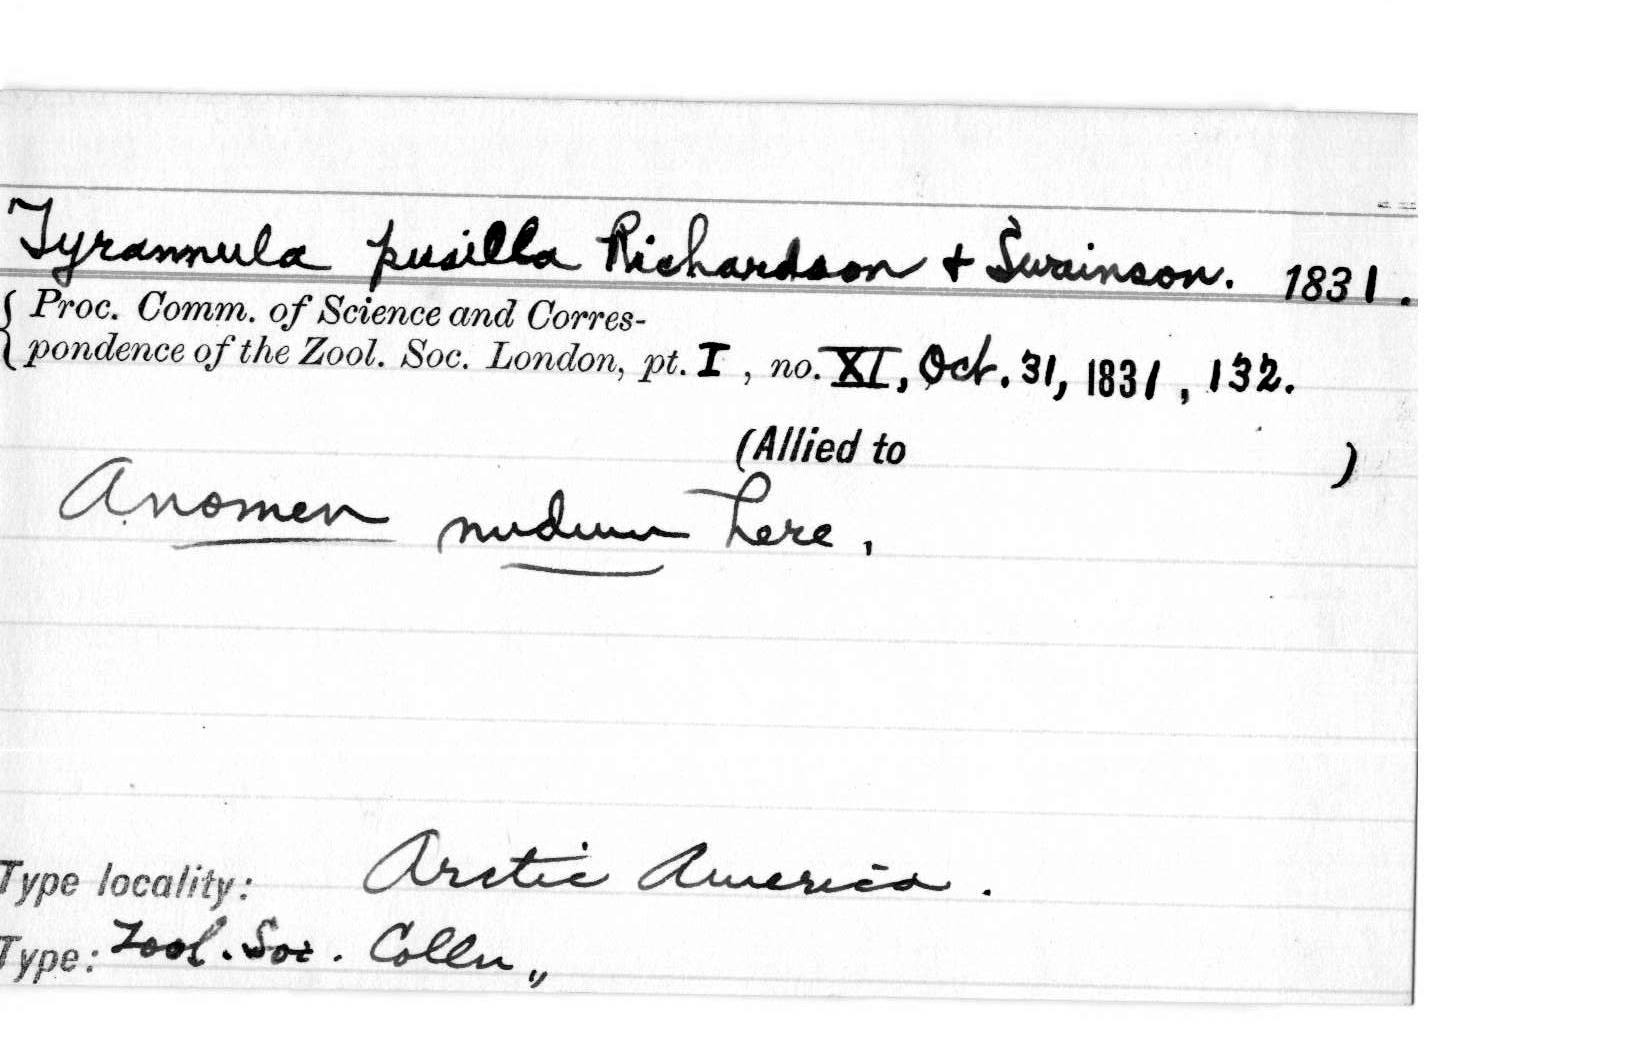 Tyrannula pusilla Richardson + Swainson. 1831.
Proc. Comm. of Science and Corres-
pondence of the Zool. Soc. London, pt. I, no. XI, Oct. 31, 1831, 132.
(Allied to )
A nomen nudum here,
Type locality: Arctic America.
Type: Zool. Soc. Colln,,